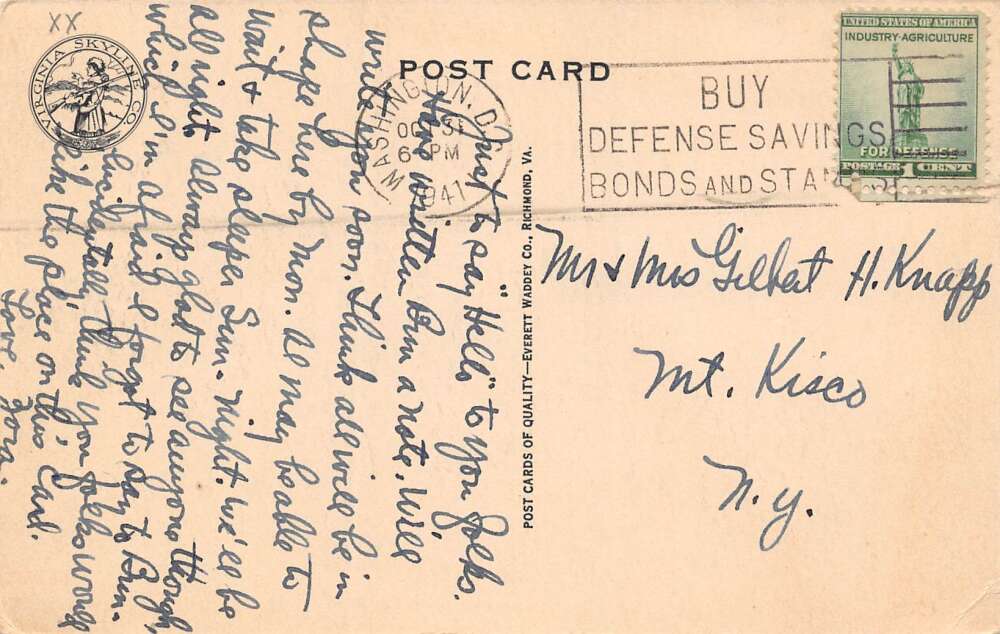 XX
VIRGINIA SKYLINE CO.
POST CARD
WASHINGTON, D.
OCT 31
6 - PM
1941
BUY
DEFENSE SAVINGS
BONDS AND STAMPS
UNITED STATES OF AMERICA
INDUSTRY-AGRICULTURE
FOR DEFENSE
POSTAGE 1 CENT
Just to say "Hello" to you folks.
Have written Bun a note. Will
write you soon. Think all will be in
shape here by Mon. So may be able to
wait & take sleeper Sun. night. We'll be
all right. Always glad to see anyone though,
which I'm afraid I forgot to say to Bun.
Incidentally think you folks would
like the place on this card.
Love,
POST CARDS OF QUALITY—EVERETT WADDEY CO., RICHMOND, VA.
Mr & Mrs Gilbert H. Knapp
Mt. Kisco
N.Y.